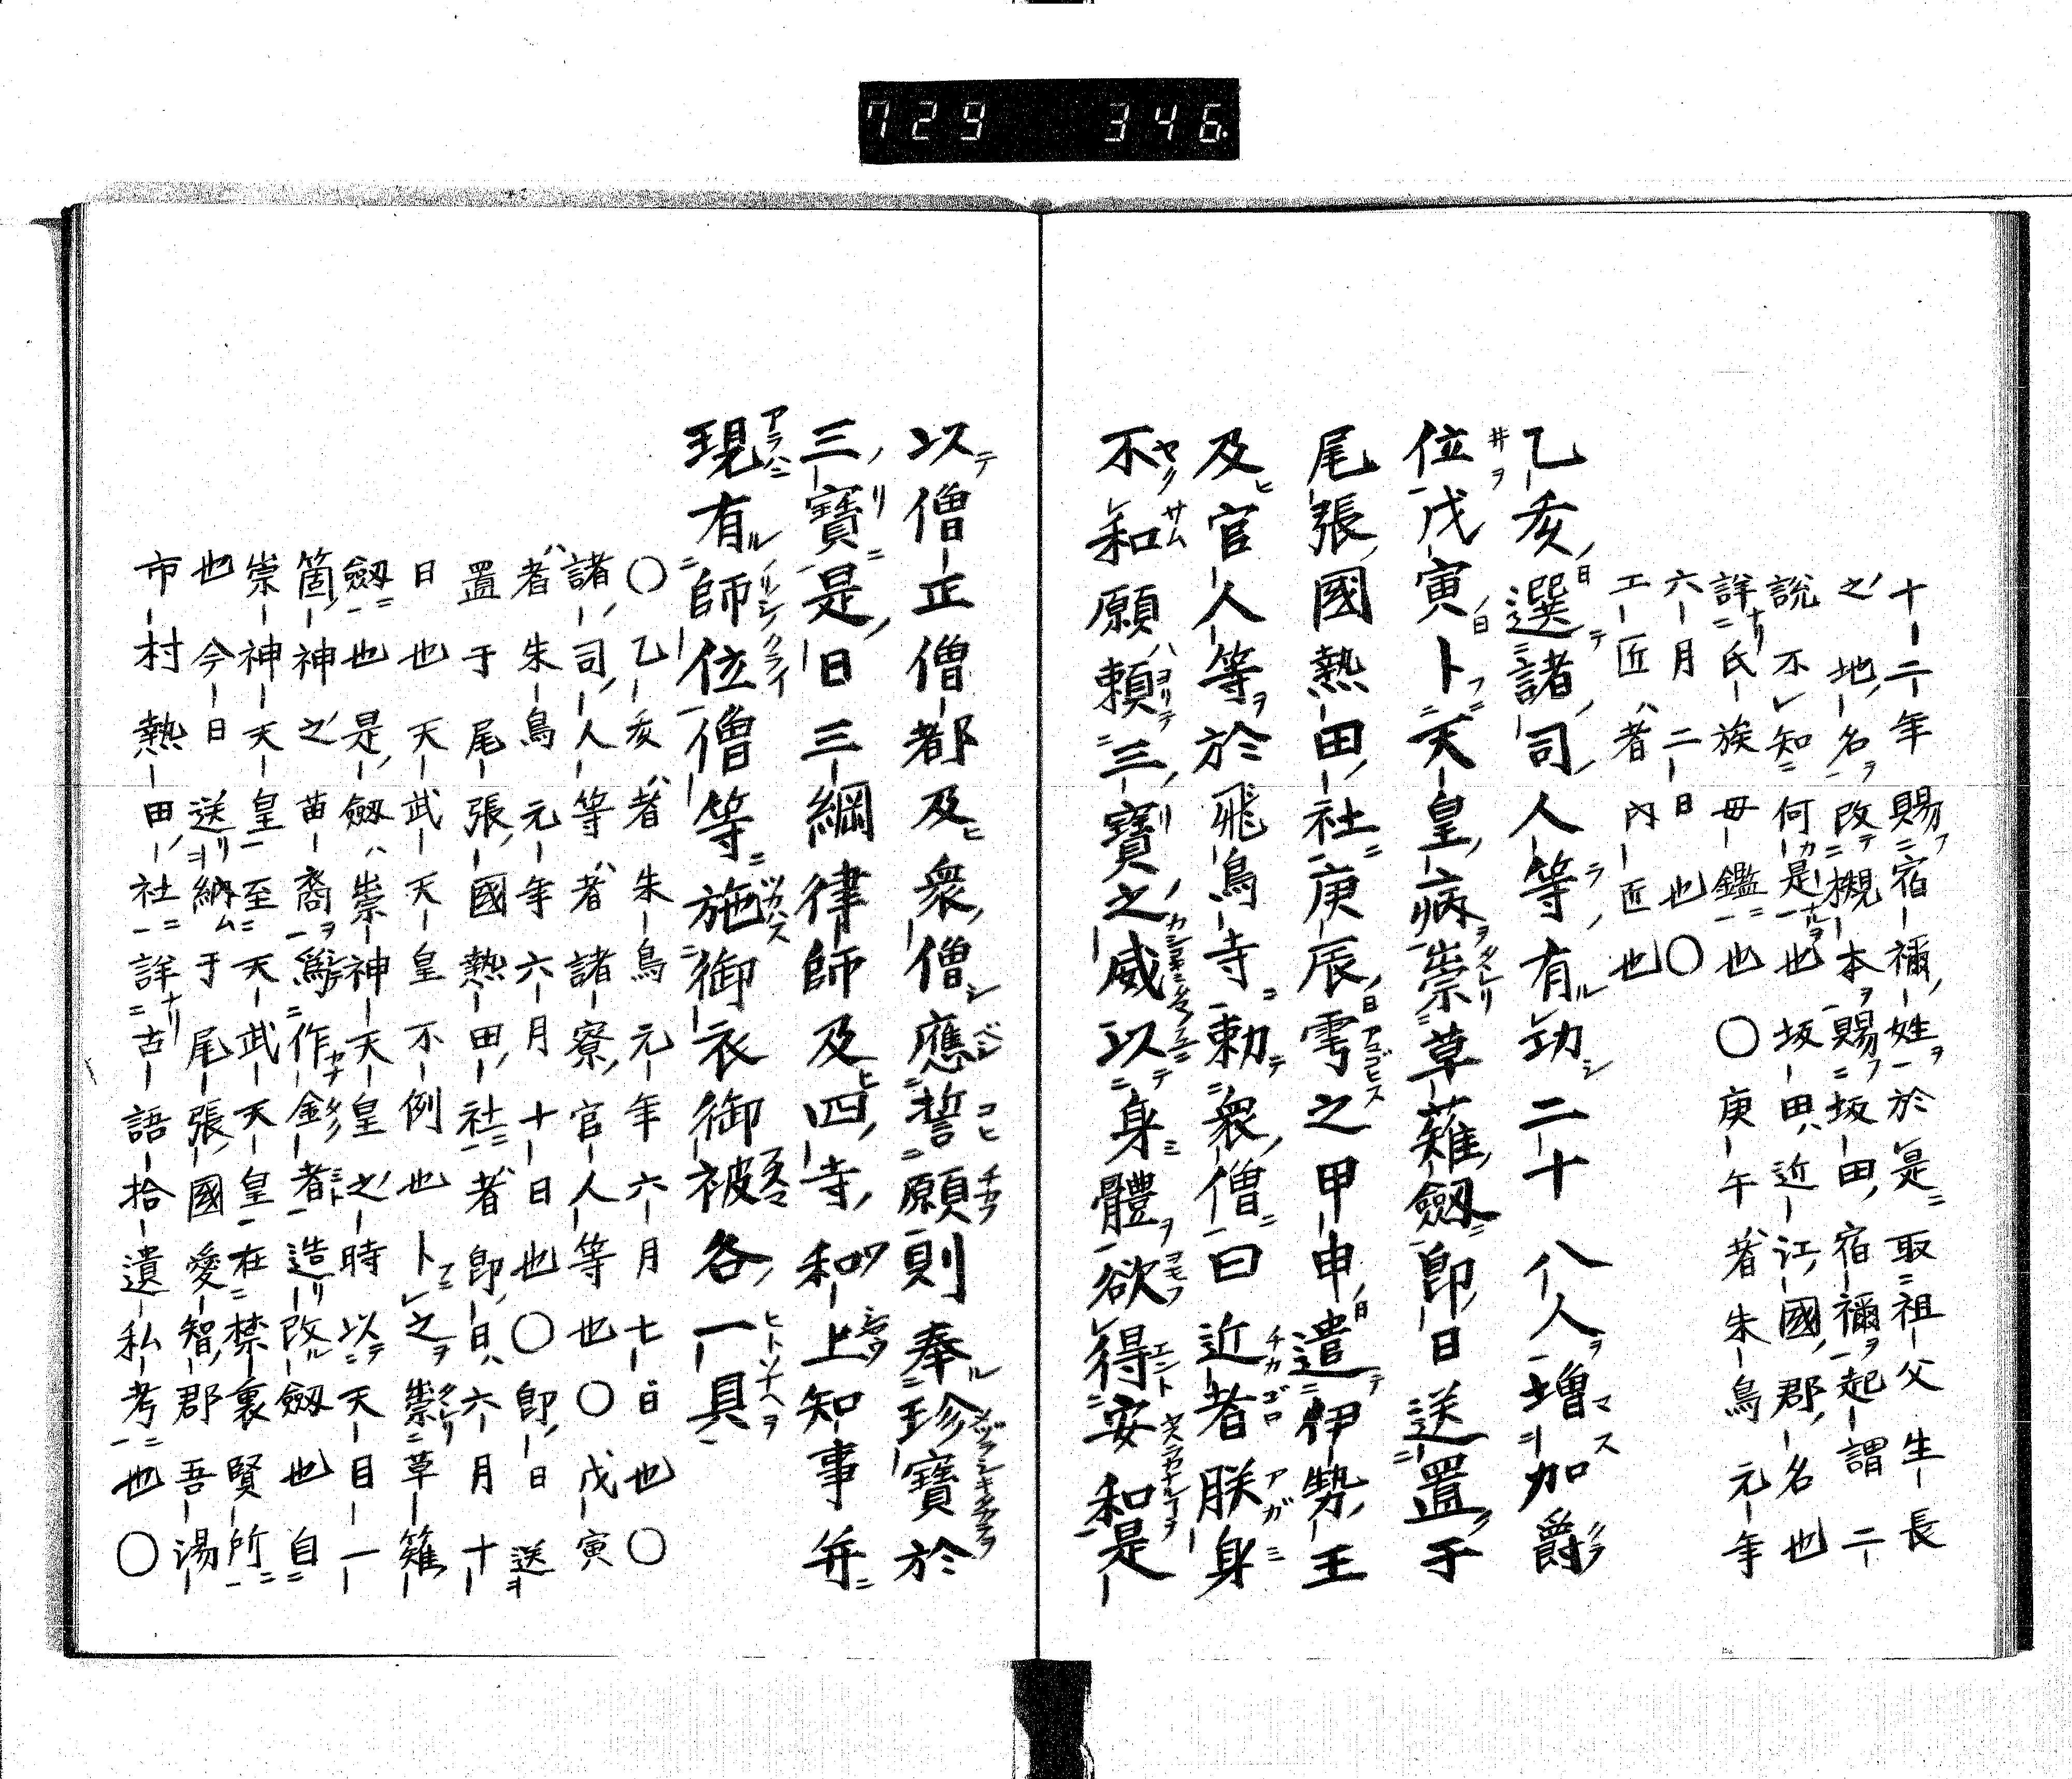 729 346
十二年賜宿禰姓於是取祖父生長
之地名改槻本賜坂田宿禰起謂二
説不知何是也坂田近江國郡名也
詳氏族母鑑也〇庚午者朱鳥元年
六月二日也〇
工匠者內匠也
乙亥選諸司人等有功二十八人增加爵
位戊寅卜天皇病祟草薙劔卽日送置于
尾張國熱田社庚辰雩之甲申遣伊勢王
及官人等於飛鳥寺勅衆僧曰近者朕身
不和願賴三寶之威以身體欲得安和是
以僧正僧都及衆僧應誓願則奉珍寶於
三寶是日三綱律師及四寺和上知事并
現有師位僧等施御衣御被各一具
〇乙亥者朱鳥元年六月七日也〇
諸司人等者諸寮官人等也〇戊寅
者朱鳥元年六月十日也〇卽日送
置于尾張國熱田社者卽日六月十
日也天武天皇不例也卜之祟草薙
劔也是劔崇神天皇之時以天目一
箇神之苗裔爲作金者造改劔也自
崇神天皇至天武天皇在禁裏賢所
也今日送納于尾張國愛智郡吾湯
市村熱田社詳古語拾遺私考也〇